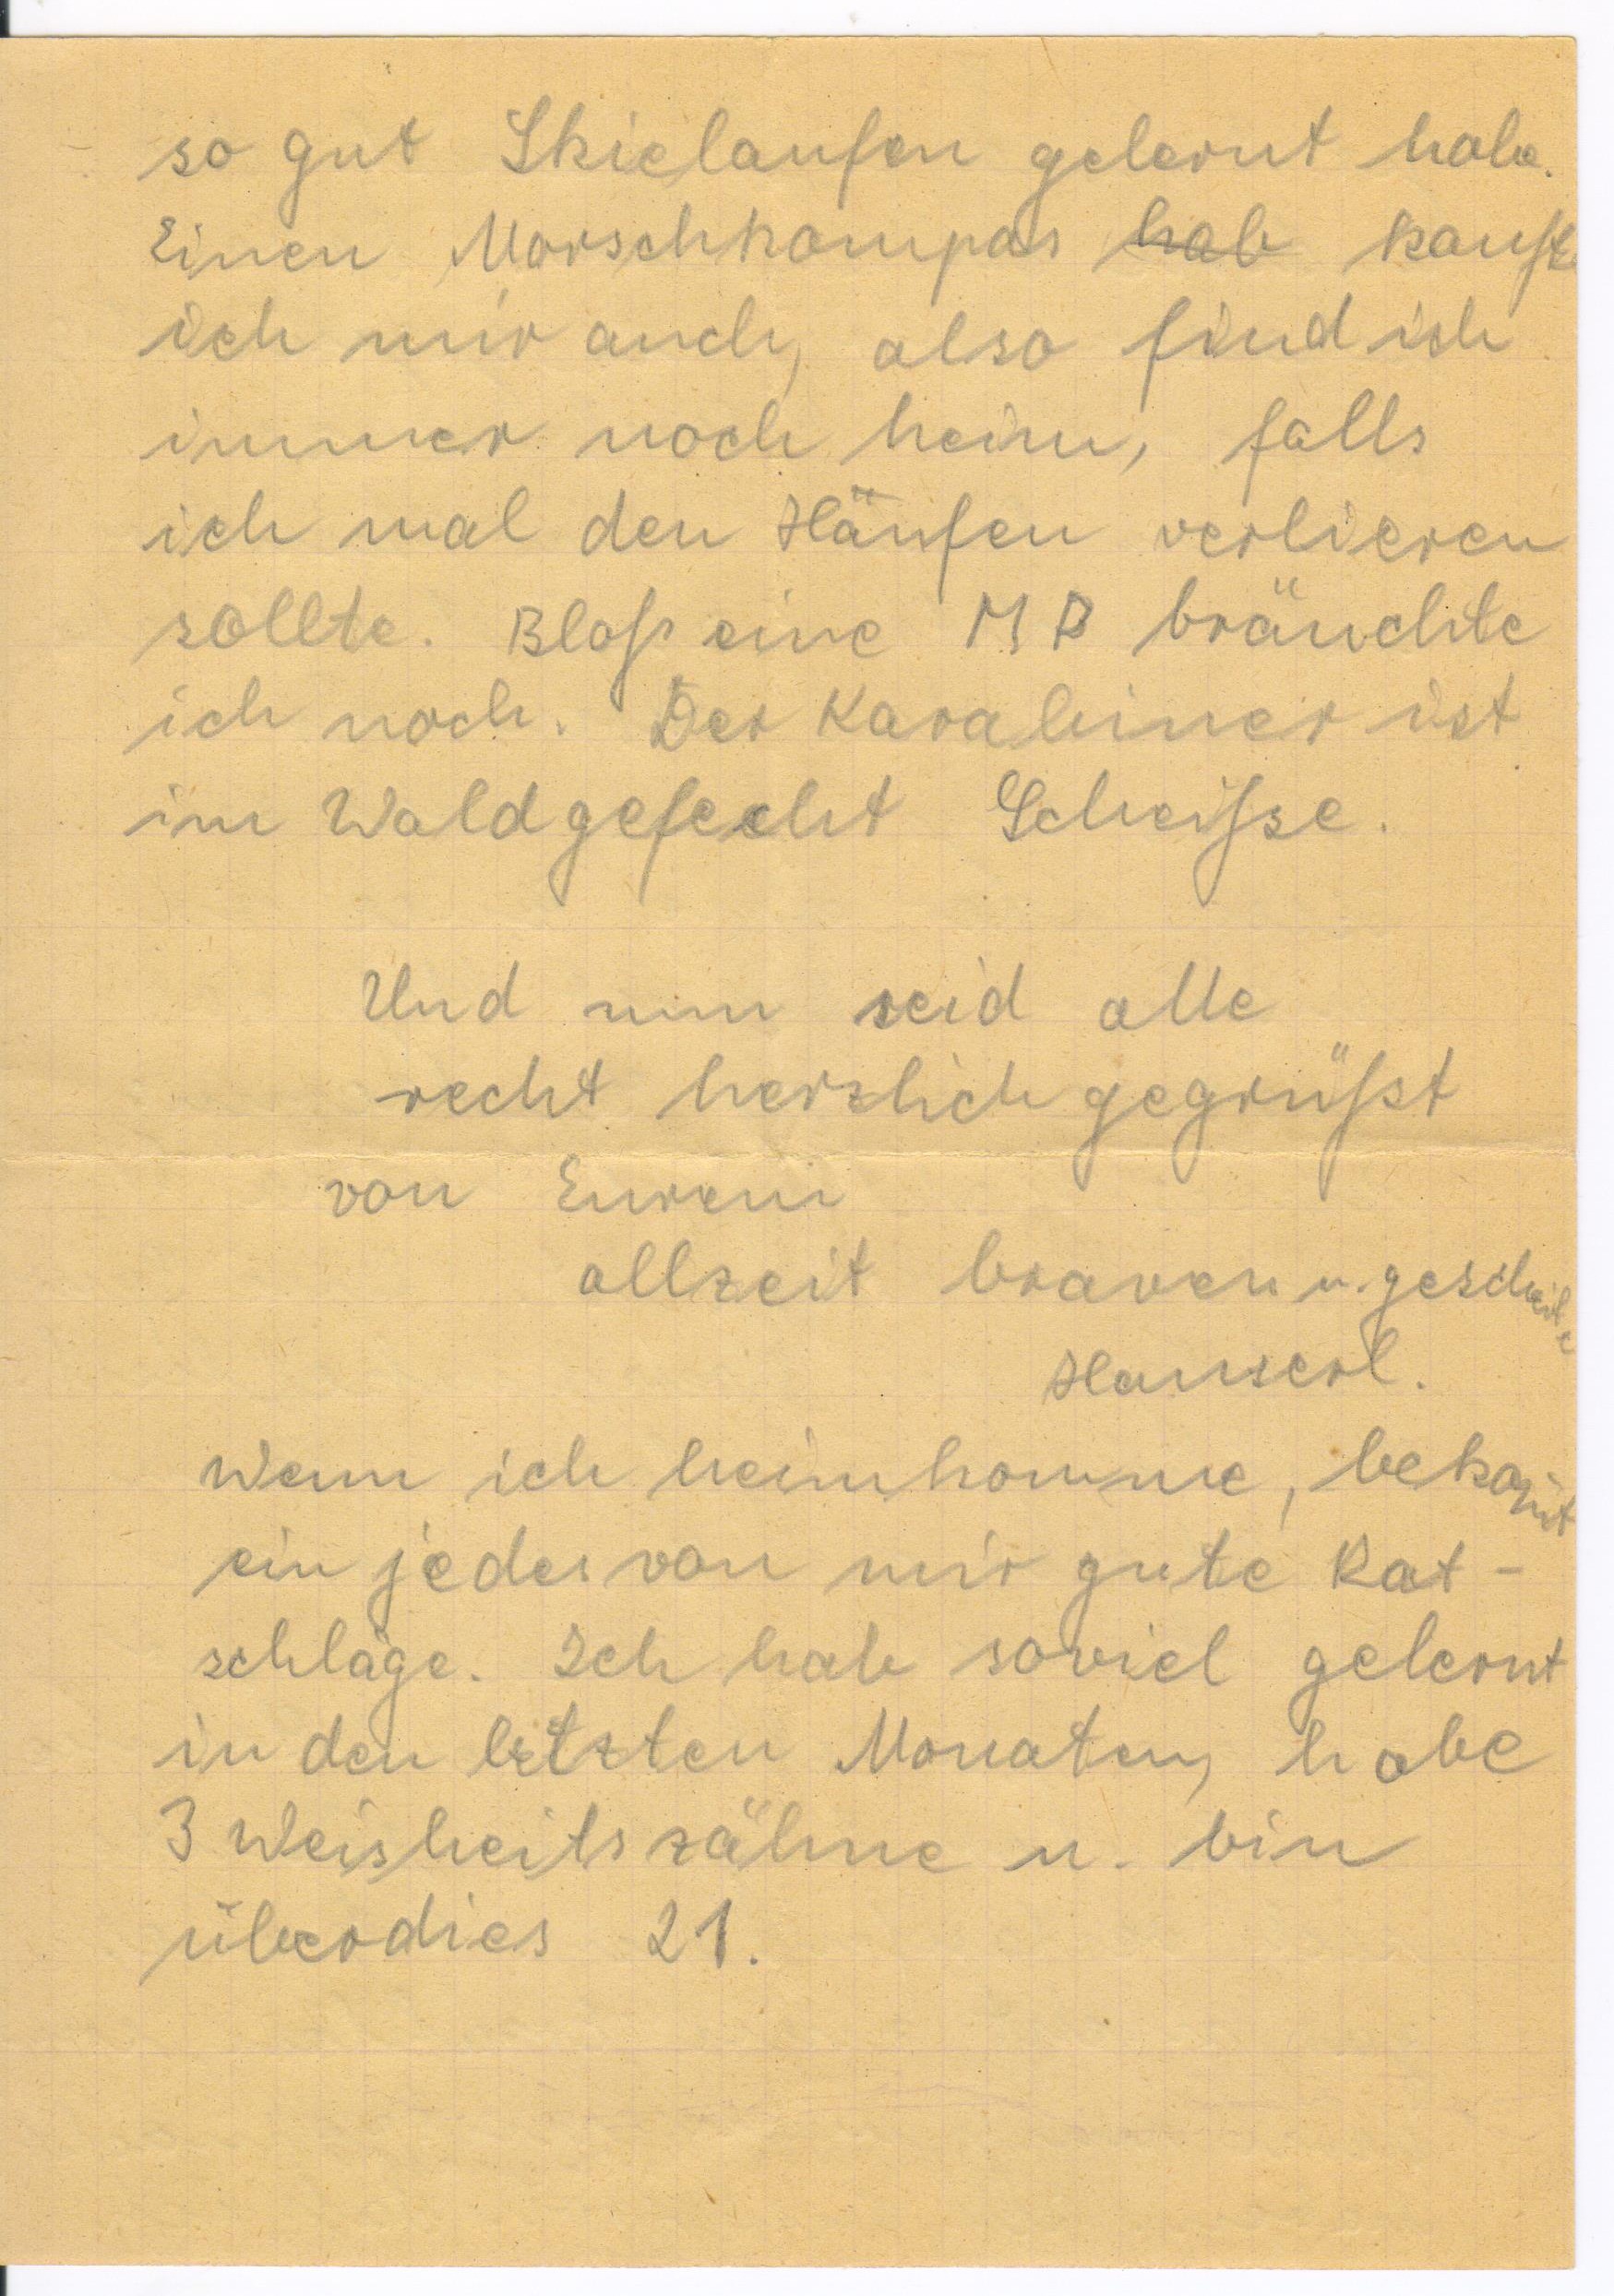 so gut Skielaufen gelernt habe.
Einen Marschkompas hab kaufte
ich mir auch, also find ich
immer noch heim, falls
ich mal den Häufen verlieren
sollte. Bloß eine MP bräuchte
ich noch. Der Karabiner ist
im Waldgefecht Scheiße.
Und nun seid alle
recht herzlich gegrüßt
von Eurem
allzeit braven u. gescheite
Hanserl.
Wenn ich heimkomme, bekommt
ein jedes von mir gute Rat-
schläge. Ich hab soviel gelernt
in den letzten Monaten, habe
3 Weisheitszähne u. bin
überdies 21.